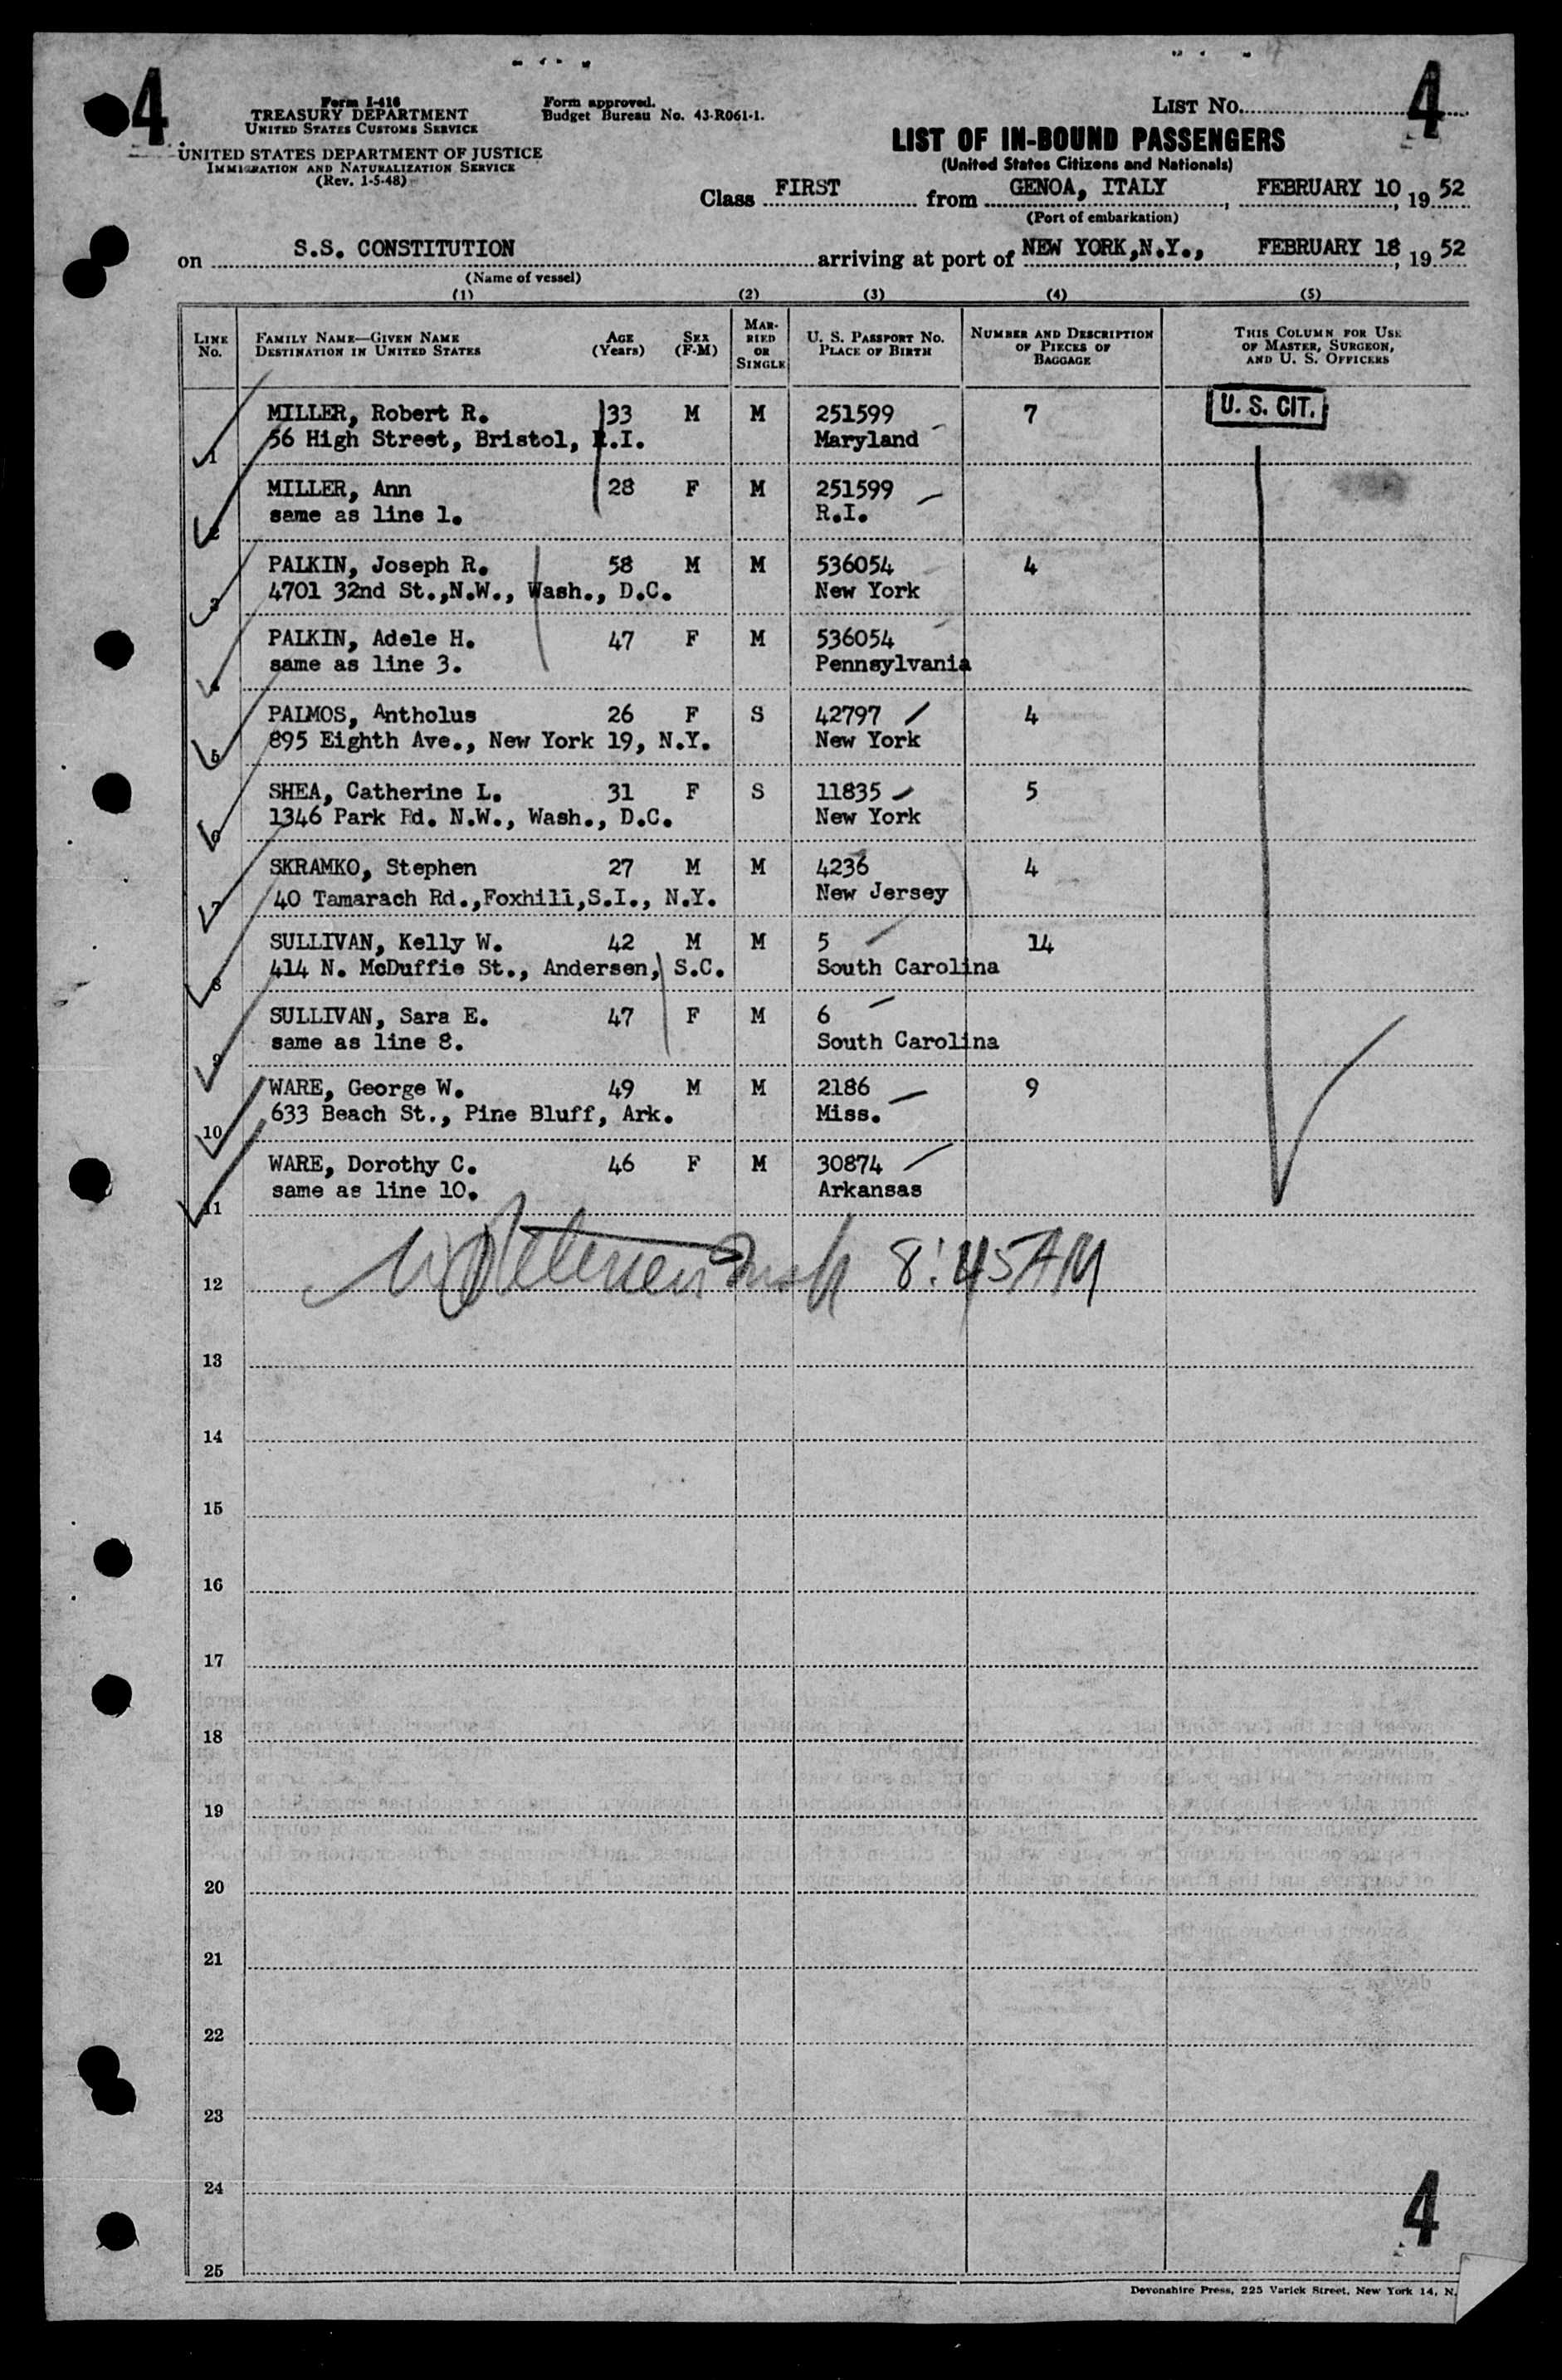 4
Form I-416
TREASURY DEPARTMENT
UNITED STATES CUSTOMS SERVICE
UNITED STATES DEPARTMENT OF JUSTICE
IMMIGRATION AND NATURALIZATION SERVICE
(Rev. 1-5-48)
Form approved.
Budget Bureau No. 43-R061-1.
LIST NO. 4
LIST OF IN-BOUND PASSENGERS
(United States Citizens and Nationals)
Class FIRST from GENOA, ITALY, FEBRUARY 10, 19 52
(Port of embarkation)
on S.S. CONSTITUTION arriving at port of NEW YORK,N.Y., FEBRUARY 18, 19 52
(Name of vessel)
(1) (2) (3) (4) (5)
LINE No.
FAMILY NAME—GIVEN NAME
DESTINATION IN UNITED STATES
AGE (Years)
SEX (F-M)
MARRIED OR SINGLE
U. S. PASSPORT NO.
PLACE OF BIRTH
NUMBER AND DESCRIPTION OF PIECES OF BAGGAGE
THIS COLUMN FOR USE OF MASTER, SURGEON, AND U. S. OFFICERS
MILLER, Robert R. 33 M M 251599 7 U. S. CIT.
1 56 High Street, Bristol, R.I. Maryland
MILLER, Ann 28 F M 251599
2 same as line 1. R.I.
PALKIN, Joseph R. 58 M M 536054 4
3 4701 32nd St.,N.W., Wash., D.C. New York
PALKIN, Adele H. 47 F M 536054
4 same as line 3. Pennsylvania
PALMOS, Antholus 26 F S 42797 4
5 895 Eighth Ave., New York 19, N.Y. New York
SHEA, Catherine L. 31 F S 11835 5
6 1346 Park Rd. N.W., Wash., D.C. New York
SKRAMKO, Stephen 27 M M 4236 4
7 40 Tamarach Rd.,Foxhill,S.I., N.Y. New Jersey
SULLIVAN, Kelly W. 42 M M 5 14
8 414 N. McDuffie St., Andersen, S.C. South Carolina
SULLIVAN, Sara E. 47 F M 6
9 same as line 8. South Carolina
WARE, George W. 49 M M 2186 9
10 633 Beach St., Pine Bluff, Ark. Miss.
WARE, Dorothy C. 46 F M 30874
11 same as line 10. Arkansas
12 8:45 AM
13
14
15
16
17
18
19
20
21
22
23
24
25
4
Devonshire Press, 225 Varick Street, New York 14, N.